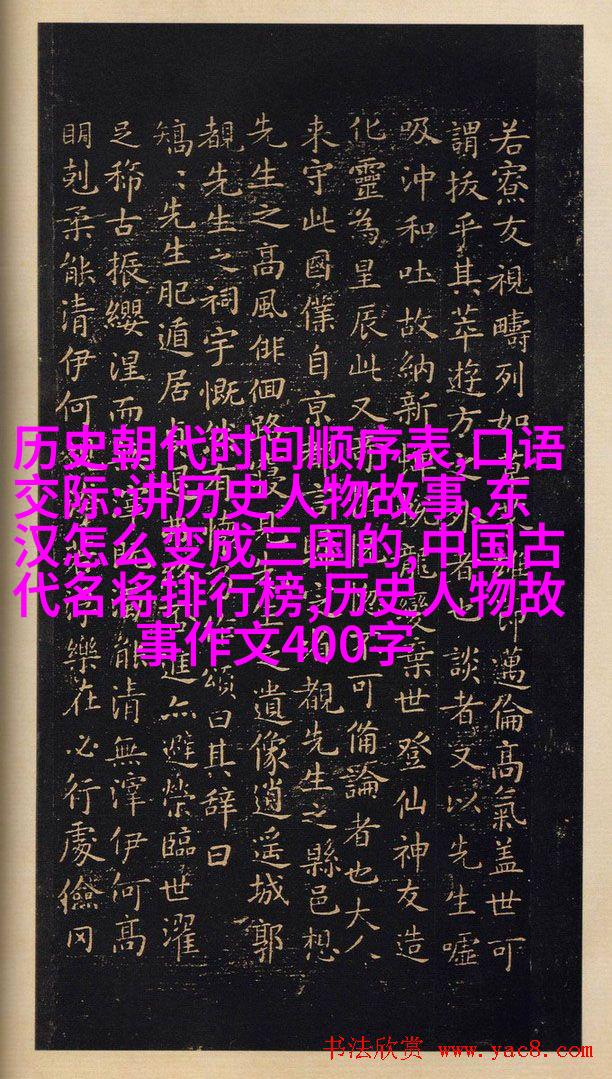 若寮友視疇列如邁倫高氣蓋世可
謂拔乎其萃遊方外者也談者又以先生噓
吸沖和吐故納新龍變棄世登仙神友造
化靈為星辰此又可備論者也大人
来守此國僕自京覩先生之縣邑想
先生之高風俳佪路之遺像逍遥城郭
覩先生之祠宇慨頌曰其辭曰
矯:先生肥遁居進亦避榮臨世濯
足稀古振纓涅而能清無滓伊何高
明剋柔能清伊何樂在必行處儉罔
历史朝代时间顺序表,口语
交际:讲历史人物故事,东
汉怎么变成三国的,中国古
代名将排行榜,历史人物故
事作文400字
书法欣赏 www.yac8.com